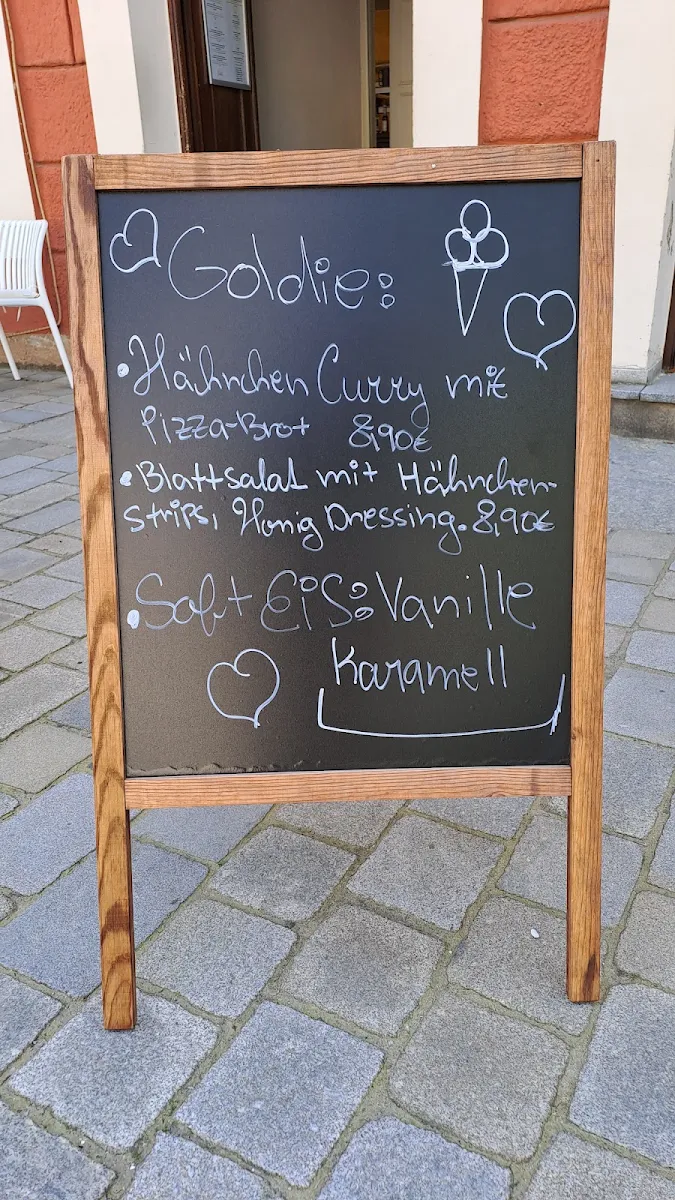 Goldie:
• Hähnchen Curry mit
Pizza-Brot 8,90€
• Blattsalat mit Hähnchen-
Strips, Honig Dressing. 8,90€
• Soft Eis: Vanille
Karamell